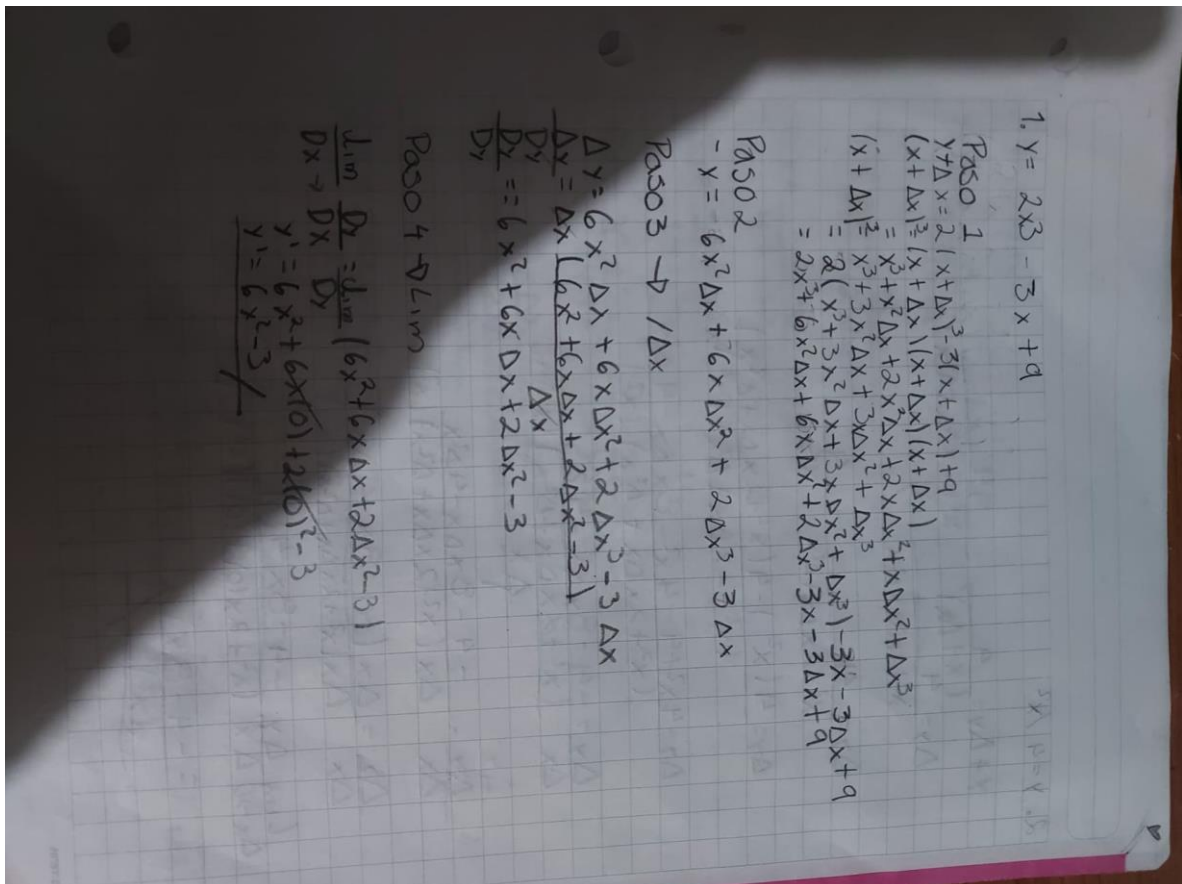 1. y = 2x3 - 3x + 9
Paso 1
y+Δx = 2(x+Δx)³ - 3(x+Δx)+9
(x+Δx)³= (x+Δx)(x+Δx)(x+Δx)
= x³+x²Δx+2x²Δx+2xΔx²+xΔx²+Δx³
(x+Δx)³= x³+3x²Δx+3xΔx²+Δx³
= 2(x³+3x²Δx+3xΔx²+Δx³)-3x-3Δx+9
= 2x³+6x²Δx+6xΔx²+2Δx³-3x-3Δx+9
Paso 2
-y = 6x²Δx+6xΔx²+2Δx³-3Δx
Paso 3 → /Δx
Δy=6x²Δx+6xΔx²+2Δx³-3Δx
Δy = Δx(6x²+6xΔx+2Δx²-3)
Dy Δx
Dy == 6x²+6xΔx+2Δx²-3
Dy
Paso 4 → Lim
Lim Dy = Lim (6x²+6xΔx+2Δx²-3)
Dx→ Dx Dy
y'= 6x²+6x(0)+2(0)²-3
y'= 6x²-3